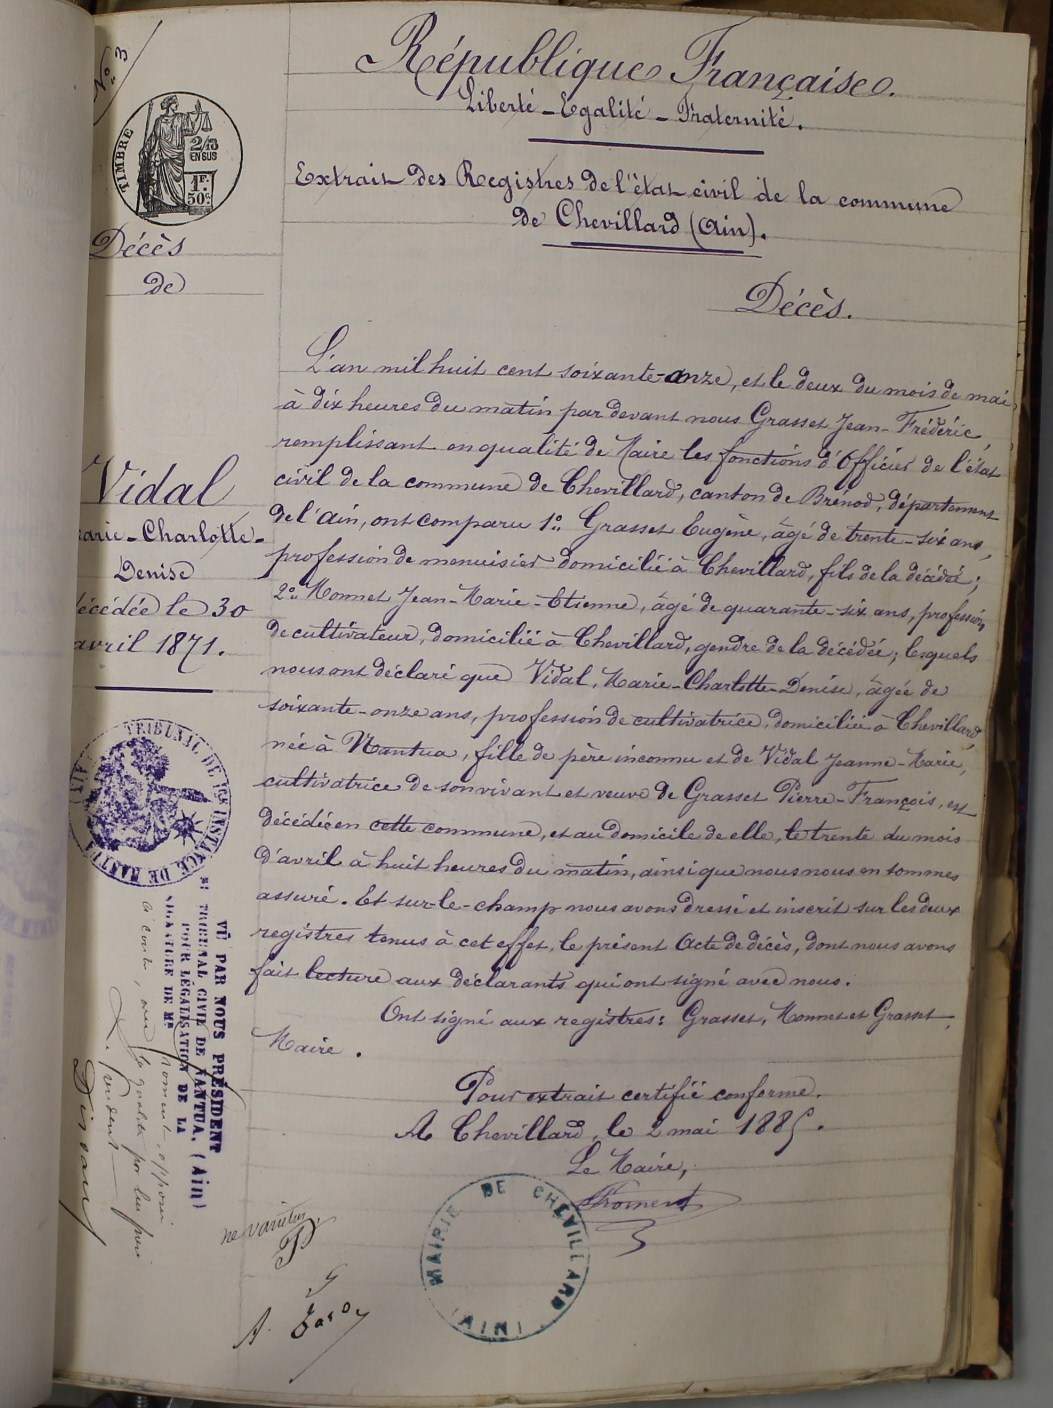 N° 3
République Française.
Liberté - Egalité - Fraternité.
TIMBRE
2/10
EN SUS
1F.
50c.
Extrait des Registres de l'état civil de la commune
de Chevillard (Ain).
Décès
de
Vidal
Marie-Charlotte-
Denise
décédée le 30
avril 1871.
Décès.
L'an mil huit cent soixante-onze, et le deux du mois de mai
à dix heures du matin par devant nous Grasset Jean-Frédéric,
remplissant en qualité de Maire les fonctions d'Officier de l'état
civil de la commune de Chevillard, canton de Brénod, département
de l'Ain, ont comparu 1° Grasset Eugène, âgé de trente-six ans,
profession de menuisier domicilié à Chevillard, fils de la décédée;
2° Monnet Jean-Marie-Etienne, âgé de quarante-six ans, profession
de cultivateur, domicilié à Chevillard, gendre de la décédée; lesquels
nous ont déclaré que Vidal, Marie-Charlotte-Denise, âgée de
soixante-onze ans, profession de cultivatrice, domiciliée à Chevillard,
née à Nantua, fille de père inconnu et de Vidal Jeanne-Marie,
cultivatrice de son vivant et veuve de Grasset Pierre-François, est
décédée en cette commune, et au domicile de elle, le trente du mois
d'avril à huit heures du matin, ainsi que nous nous en sommes
assuré. Et sur-le-champ nous avons dressé et inscrit sur les deux
registres tenus à cet effet, le présent Acte de décès, dont nous avons
fait lecture aux déclarants qui ont signé avec nous.
Ont signé aux registres: Grasset, Monnet et Grasset,
Maire.
Pour extrait certifié conforme.
A Chevillard, le 2 mai 1885.
Le Maire,
Froment
MAIRIE DE CHEVILLARD (AIN)
TRIBUNAL DE 1re INSTANCE DE NANTUA
VU PAR NOUS PRÉSIDENT
TRIBUNAL CIVIL DE NANTUA, (Ain)
POUR LÉGALISATION DE LA
SIGNATURE DE Mr
Froment apposé
Le président
ne varietur